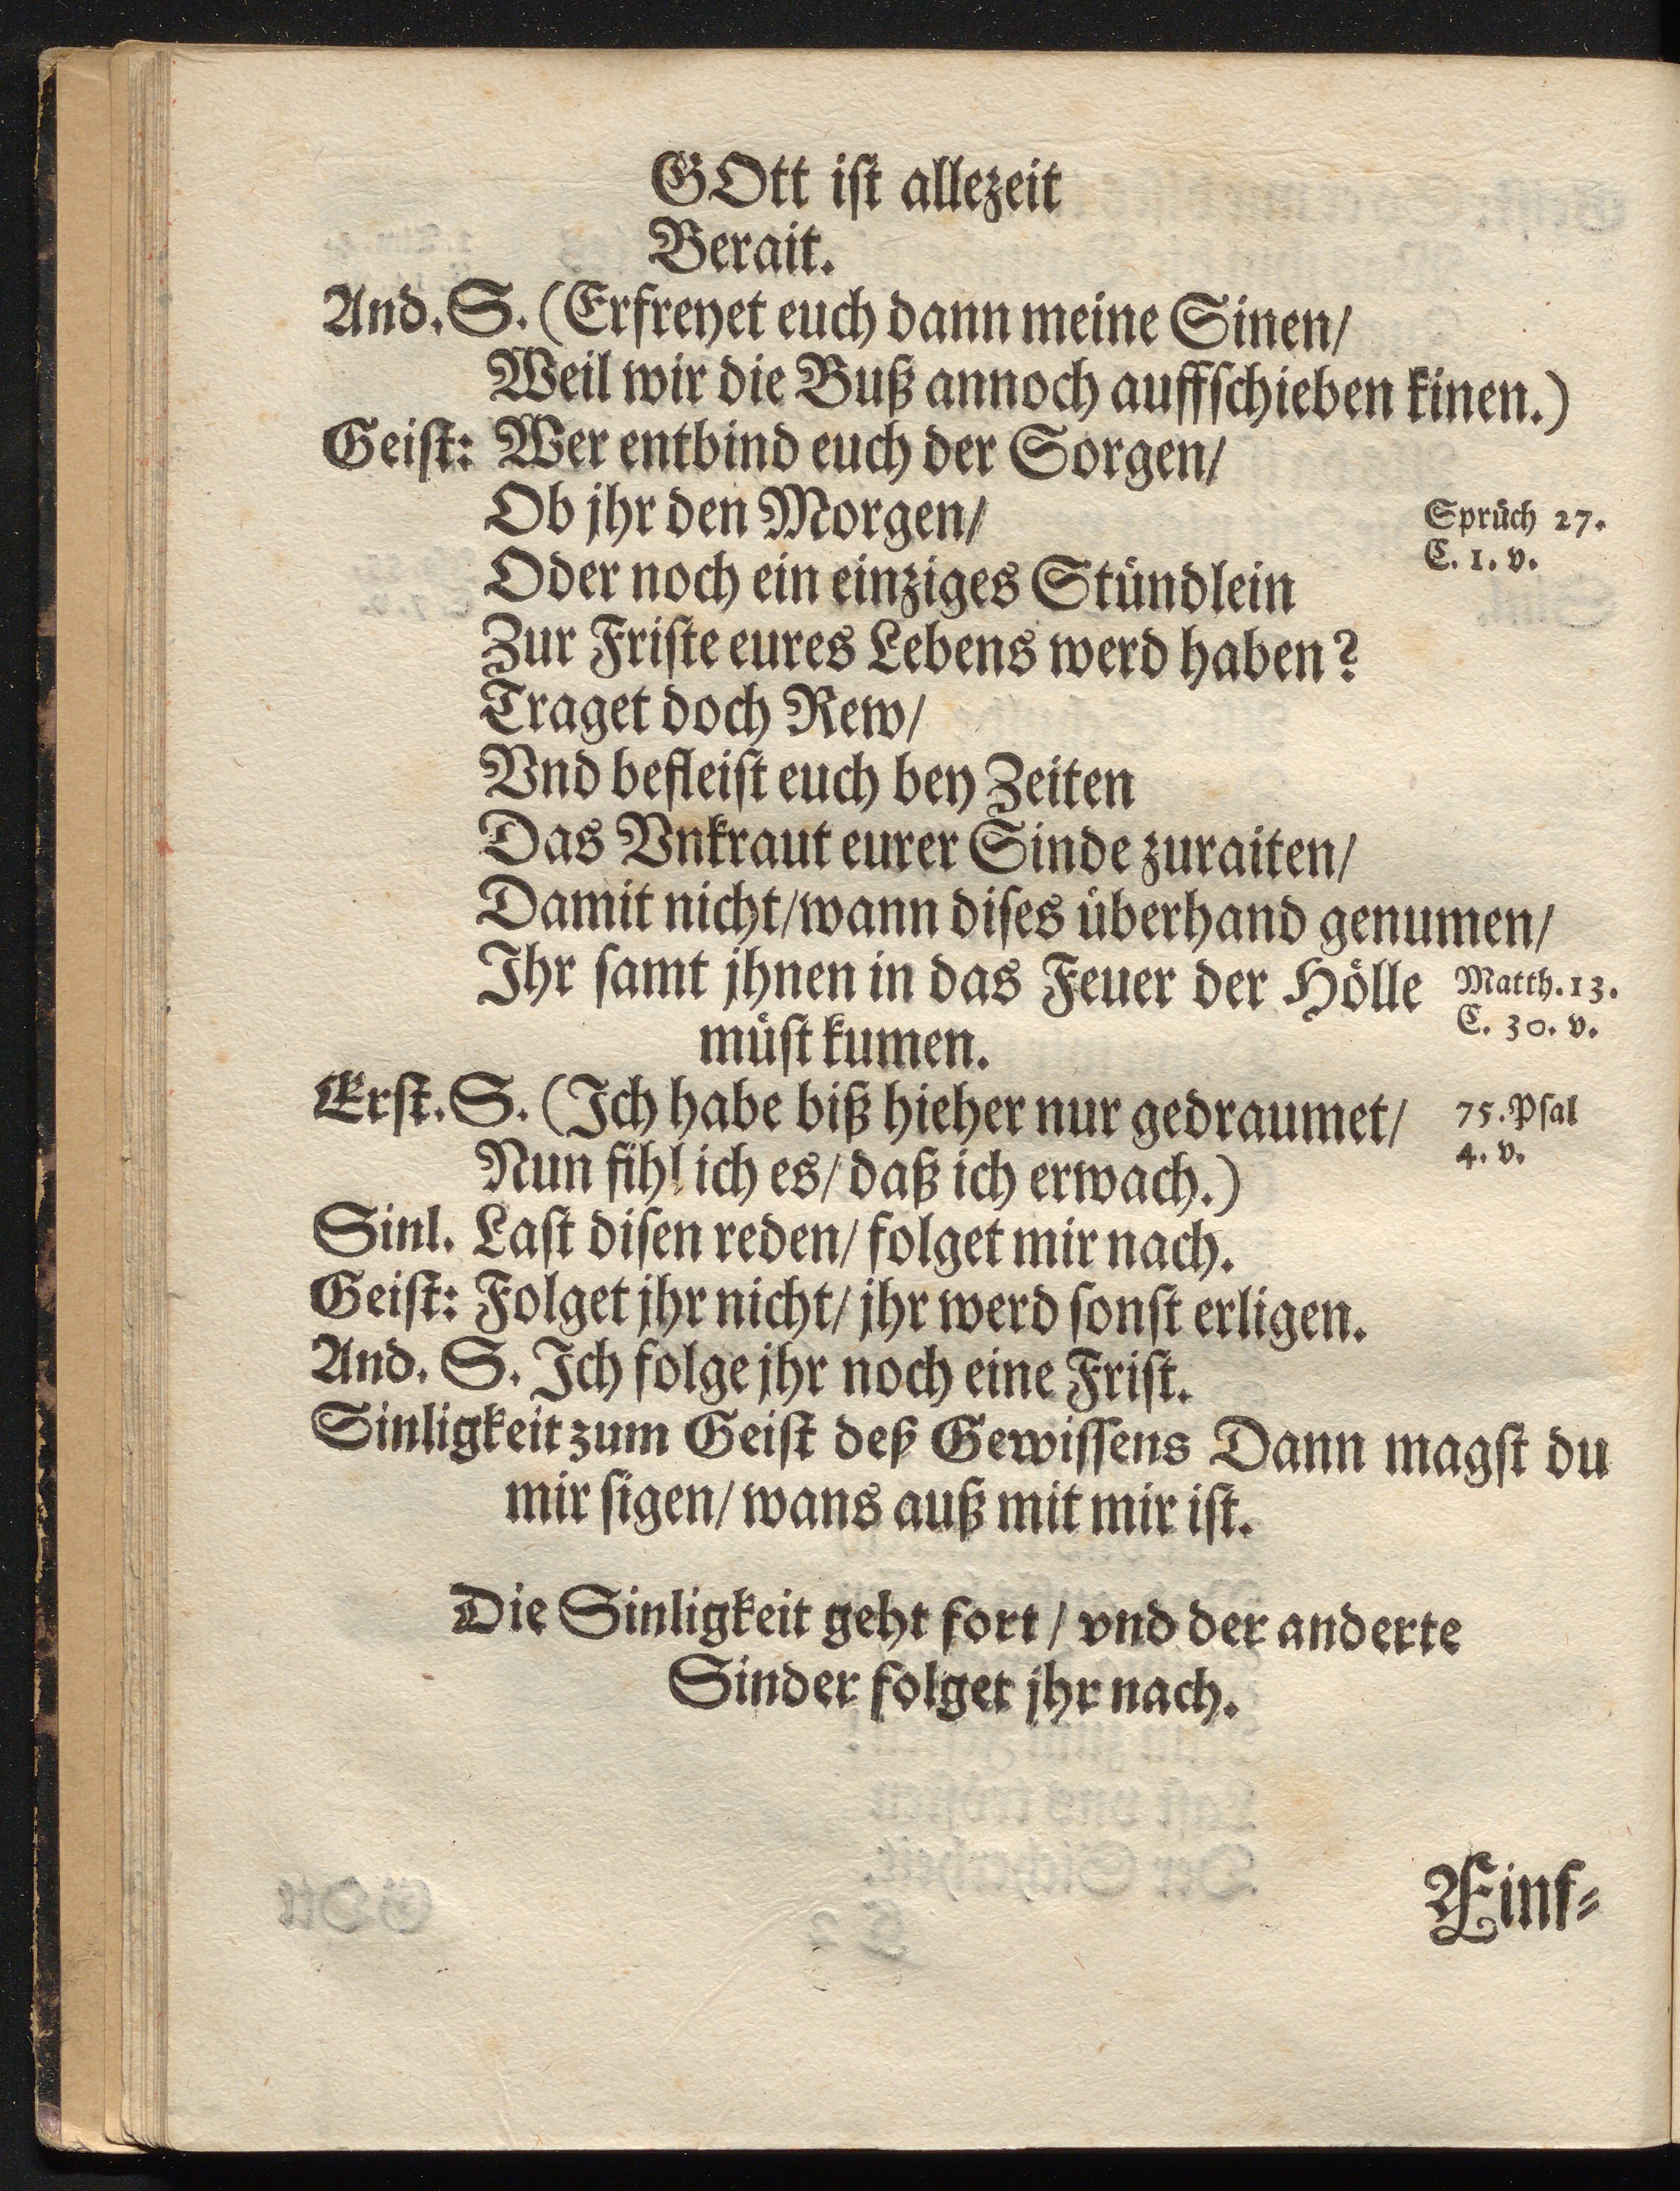 GOtt iſt allezeit
Berait.
And. S. (Erfreyet euch dann meine Sinen/
Weil wir die Buß annoch auffſchieben kinen.)
Geiſt: Wer entbind euch der Sorgen/
Ob jhr den Morgen/
Spruͤch 27.
C. 1. v.
Oder noch ein einziges Stuͤndlein
Zur Friſte eures Lebens werd haben?
Traget doch Rew/
Vnd befleiſt euch bey Zeiten
Das Vnkraut eurer Sinde zuraiten/
Damit nicht/ wann diſes uͤberhand genumen/
Ihr ſamt jhnen in das Feuer der Hoͤlle
muͤſt kumen.
Matth. 13.
C. 30. v.
Erſt. S. (Ich habe biß hieher nur gedraumet/
Nun fihl ich es/ daß ich erwach.)
75. Pſal
4. v.
Sinl. Laſt diſen reden/ folget mir nach.
Geiſt: Folget jhr nicht/ jhr werd ſonſt erligen.
And. S. Ich folge jhr noch eine Friſt.
Sinligkeit zum Geiſt deß Gewiſſens Dann magſt du
mir ſigen/ wans auß mit mir iſt.
Die Sinligkeit geht fort / vnd der anderte
Sinder folget jhr nach.
Einf⸗